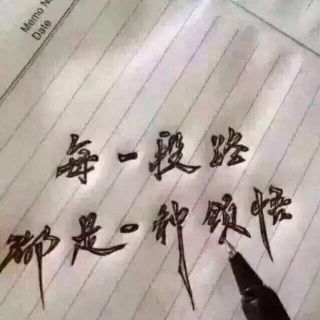 Memo N
Date
每一段经
都是一种领悟